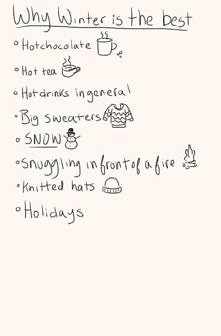 Why Winter is the best
Hotchocolate
Hot tea
Hot drinks in general
Big sweaters
SNOW
Snuggling in front of a fire
Knitted hats
Holidays